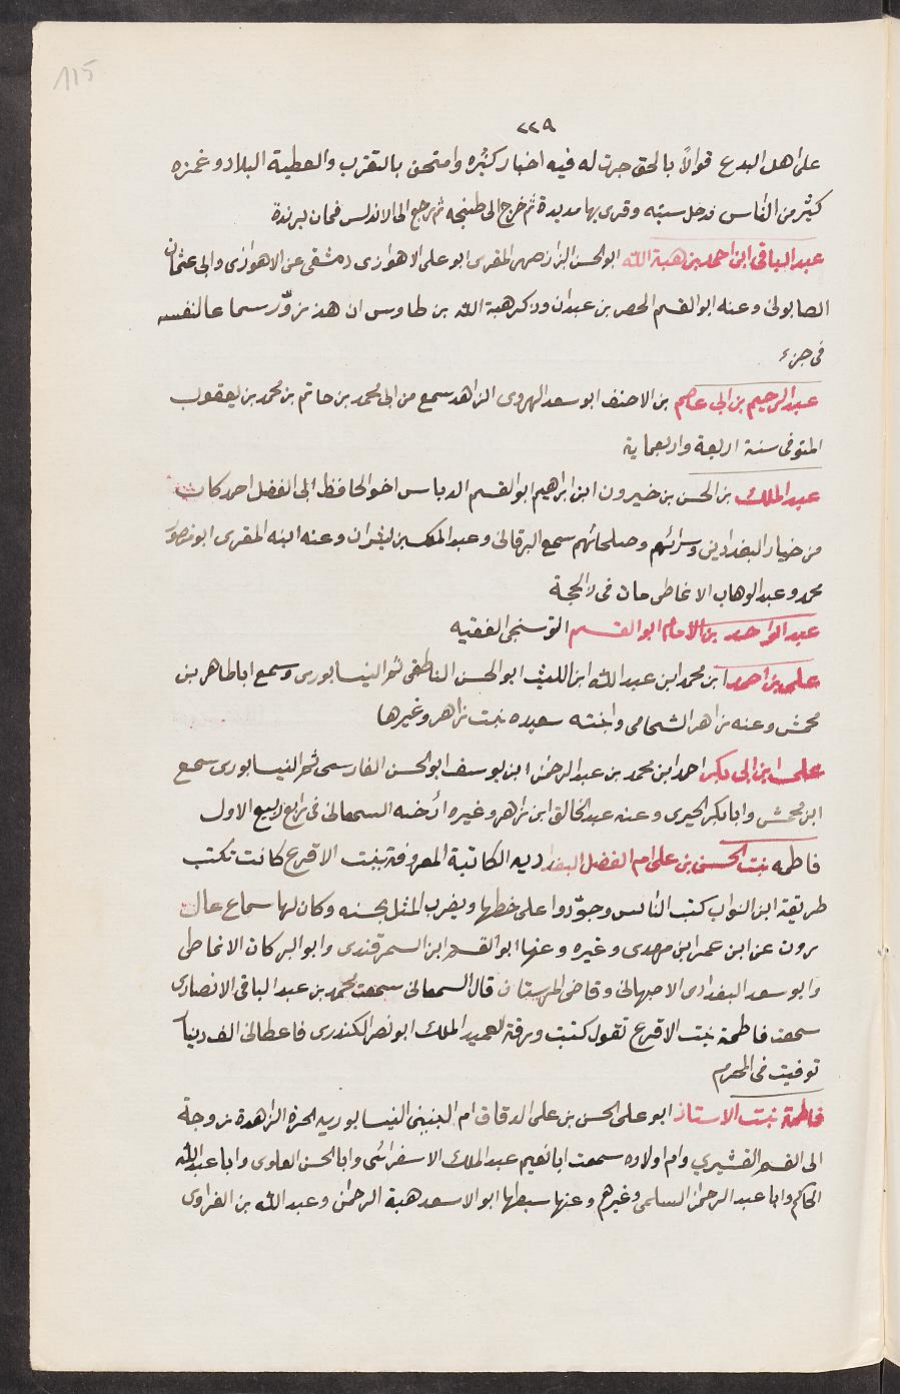 115
٢٢٩
على اهل البدع قوالاً بالحق جرت له فيه اخبار كثيره وامتحن بالتقرب والعطية البلاد وغمزه
كثير من الناس فدخل سبته وقرى بها مديدة ثم خرج الى طنجه ثم رجع الى الاندلس فمات برندة
عبد الباقى ابن احمد بن هبة الله ابو الحسن البزاز صهر المقرى ابو على الاهوازى دمشقى عن الاهوازى وابى عثمان
الصابونى وعنه ابو القسم الحصر بن عبدان وذكر هبة الله بن طاوس ان هذ زوّر سماعا لنفسه
فى جزء
عبد الرحيم بن ابى عاصم بن الاحنف ابو سعد الهروى الزاهد سمع من ابى محمد بن حاتم بن محمد بن يعقوب
المتوفى سنة اربعة واربعماية
عبد الملك بن الحسن بن خيرون ابن ابراهيم ابو القسم الدباس اخو الحافظ ابى الفضل احمد كان
من خيار البغداديى وسراتهم وصلحائهم سمع البرقانى وعبد الملك بن بشران وعنه ابنه المقرى ابو منصور
محمد وعبد الوهاب الاغاطى مات فى ذالحجة
عبد الواحد بن الامام ابو القسم التوسنجى الفقيه
على بن احمد ابن محمد ابن عبد الله ابن الليث ابو الحسن الناطفى ثم النيسابورى وسمع ابا طاهر بن
محمش وعنه زاهر الشحامى واخته سعيده بنت زاهر وغيرها
على ابن ابى بكر احمد ابن محمد بن عبد الرحمن ابن يوسف ابو الحسن الفارسى ثم النيسابورى سمع
ابن محمش وابا بكر الحيرى وعنه عبد الخالق ابن زاهر وغيره ارخه السمعانى فى رابع ربيع الاول
فاطمه بنت الحسن بن على ام الفضل البغداديه الكاتبة المعروفة ببنت الاقرع كانت تكتب
طريقة ابن البواب كتب الناس وجوّدوا على خطها ويضرب المثل بحسنه وكان لها سماع عال
روت عن ابن عمر ابن مهدى وغيره وعنها ابو القسم ابن السمرقندى وابو البركات الانماطى
وابو سعد البغدادى الاصبهانى وقاضى المرستان قال السمعانى سمعت محمد بن عبد الباقى الانصارى
سمعت فاطمة بنت الاقرع تقول كتبت ورقة لعميد الملك ابو نصر الكندرى فاعطانى الف دينار
توفيت فى المحرم
فاطمة بنت الاستاذ ابو على الحسن بن على الدقاق ام البنينى النيسابوريه الحرة الزاهدة زوجة
ابى القسم القشيري وام اولاده سمعت ابا نعيم عبد الملك الاسفرائنى وابا الحسن العلوى وابا عبد الله
الحاكم وابا عبد الرحمن السلمى وغيرهم وعنها سبطها ابو الاسعد هبة الرحمن وعبد الله بن الفراوى